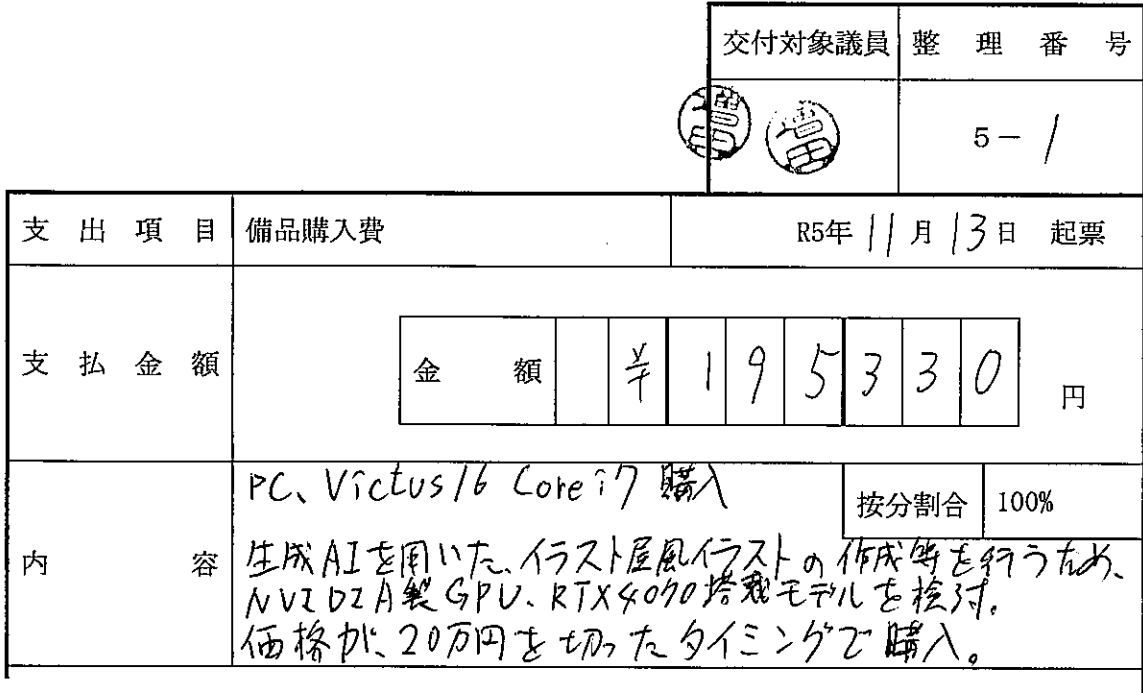 交付対象議員 整理番号
増田 増田 5-1
支出項目 備品購入費 R5年11月13日 起票
支払金額 金額 ¥195330円
PC、Victus16 Core i7 購入
按分割合 100%
内容
生成AIを用いた、イラスト屋風イラストの作成等を行うため、
NVIDIA製GPU、RTX4070搭載モデルを検討。
価格が、20万円を切ったタイミングで購入。